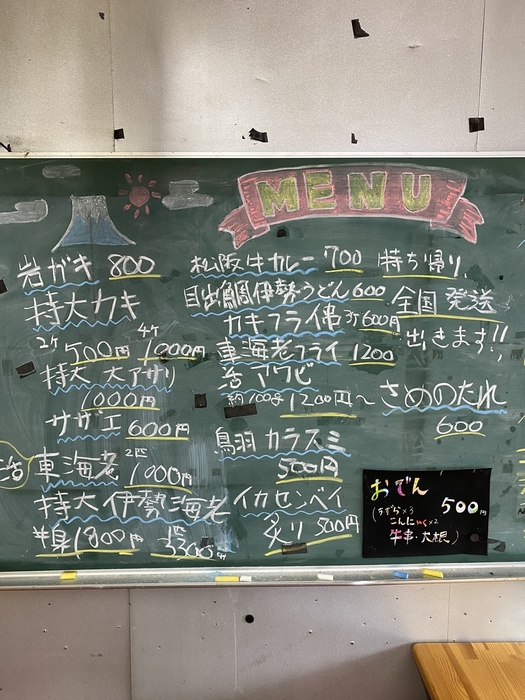 MENU
岩ガキ 800
特大カキ
2ケ 500円 4ケ 1000円
特大 大アサリ
1000円
サザエ 600円
活 車海老 2匹 1000円
特大 伊勢海老
半身1800円 1匹 3500円
松阪牛カレー 700
目出鯛伊勢うどん 600
カキフライ串 3ケ 600円
車海老フライ 1200
活アワビ
約100g 1200円〜
鳥羽 カラスミ
500円
イカセンベイ
炙り 500円
持ち帰り、
全国発送
出きます!!
さめのたれ
600
おでん
500円
(うずら×3
こんにゃく×2
牛串・大根)